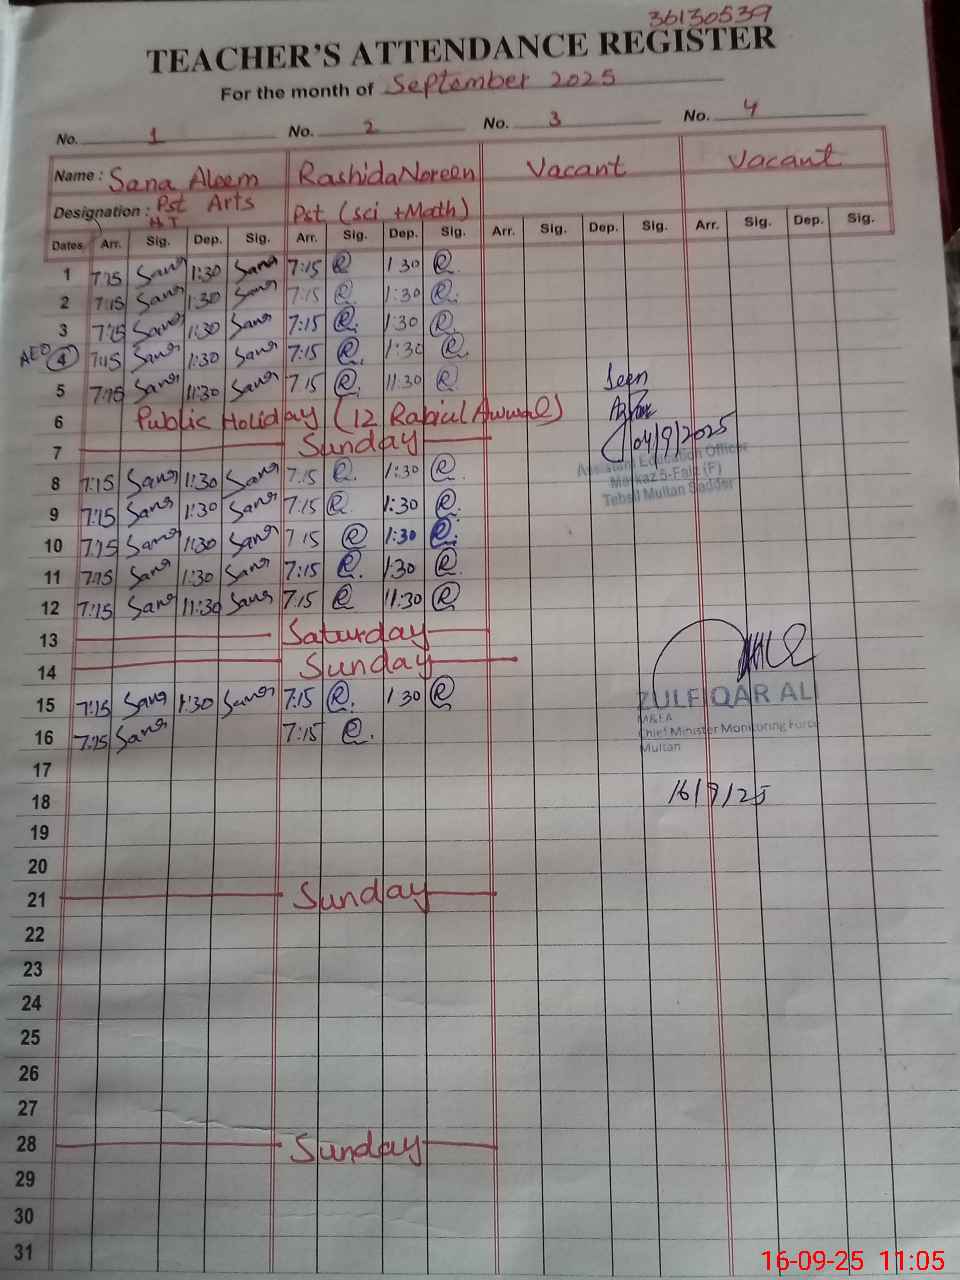 36130539
TEACHER'S ATTENDANCE REGISTER
For the month of September 2025
No. 1 No. 2 No. 3 No. 4
Name : Sana Aleem Rashida Noreen Vacant Vacant
Designation : Pst Arts Pst (sci + Math)
H T
Dates Arr. Sig. Dep. Sig. Arr. Sig. Dep. Sig. Arr. Sig. Dep. Sig. Arr. Sig. Dep. Sig.
1 7:15 Sana 1:30 Sana 7:15 R 1:30 R
2 7:15 Sana 1:30 Sana 7:15 R 1:30 R
3 7:15 Sana 1:30 Sana 7:15 R 1:30 R
AEO 4 7:15 Sana 1:30 Sana 7:15 R 1:30 R
5 7:15 Sana 11:30 Sana 7:15 R 11:30 R
Seen
6 Public Holiday (12 Rabiul Awwal)
04/9/2025
7 Sunday
Assistant Education Officer
Markaz 5-Faiz (F)
Tehsil Multan Sadder
8 7:15 Sana 1:30 Sana 7:15 R 1:30 R
9 7:15 Sana 1:30 Sana 7:15 R 1:30 R
10 7:15 Sana 1:30 Sana 7:15 R 1:30 R
11 7:15 Sana 1:30 Sana 7:15 R 1:30 R
12 7:15 Sana 11:30 Sana 7:15 R 11:30 R
13 Saturday
14 Sunday
15 7:15 Sana 1:30 Sana 7:15 R 1:30 R
ZULFIQAR ALI
M&EA
Chief Minister Monitoring Force
Multan
16 7:15 Sana 7:15 R
17
18
16/9/25
19
20
21 Sunday
22
23
24
25
26
27
28 Sunday
29
30
31
16-09-25 11:05